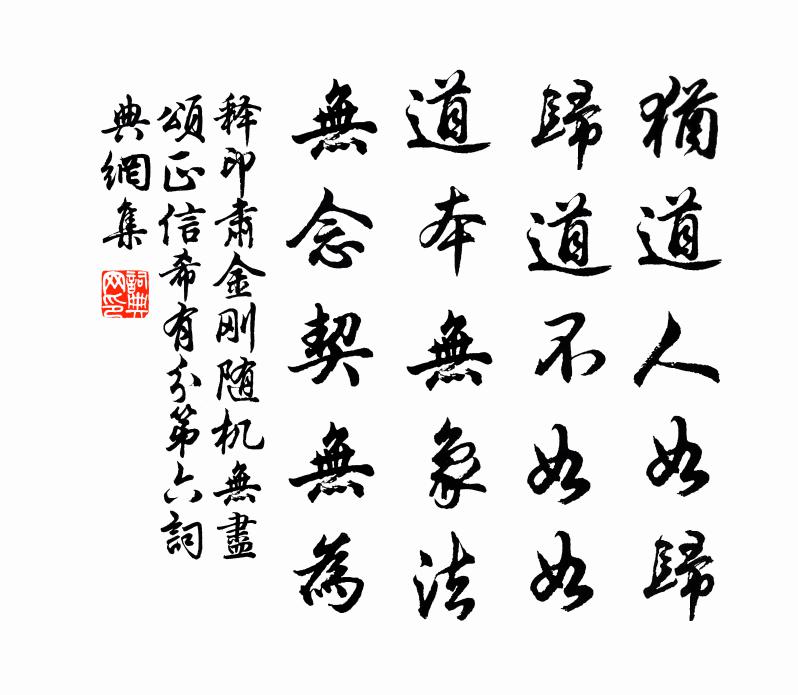 猶道人如歸
歸道不如如
道本無象法
無念契無為
释印肃金刚随机無盡
頌正信希有分第六詞
典網集
詞典網印